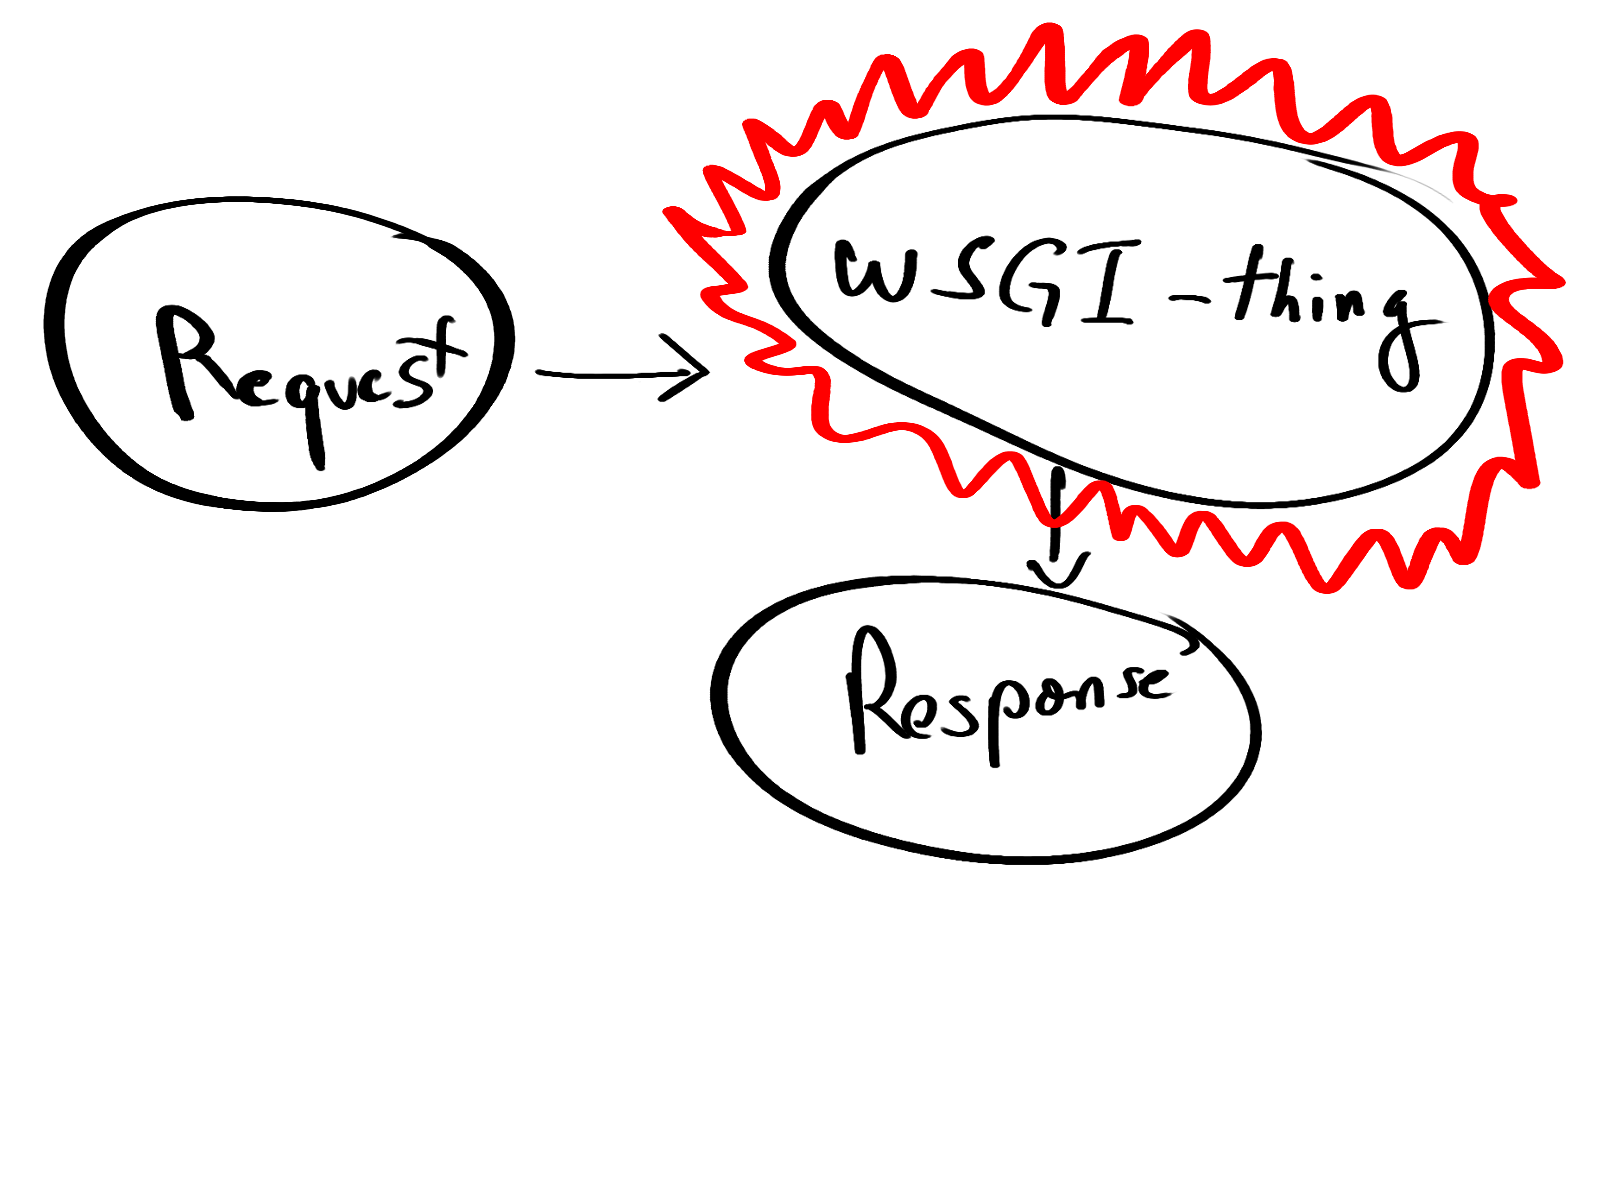 Request
WSGI-thing
Response